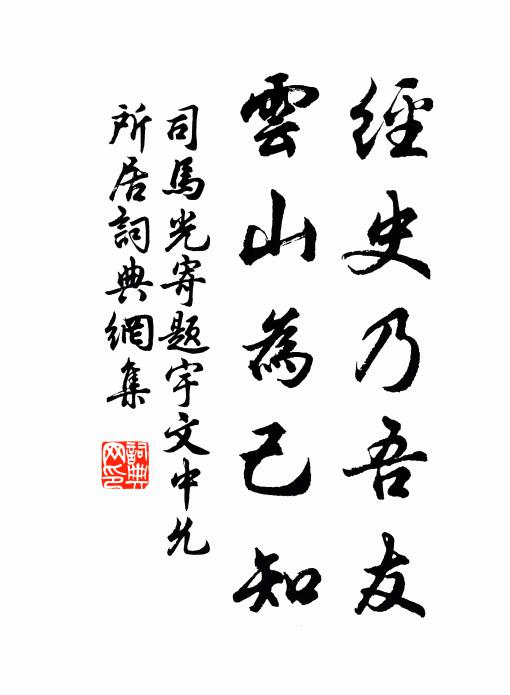 經史乃吾友
雲山為己知
司馬光寄題宇文中允
所居詞典網集
詞典网印